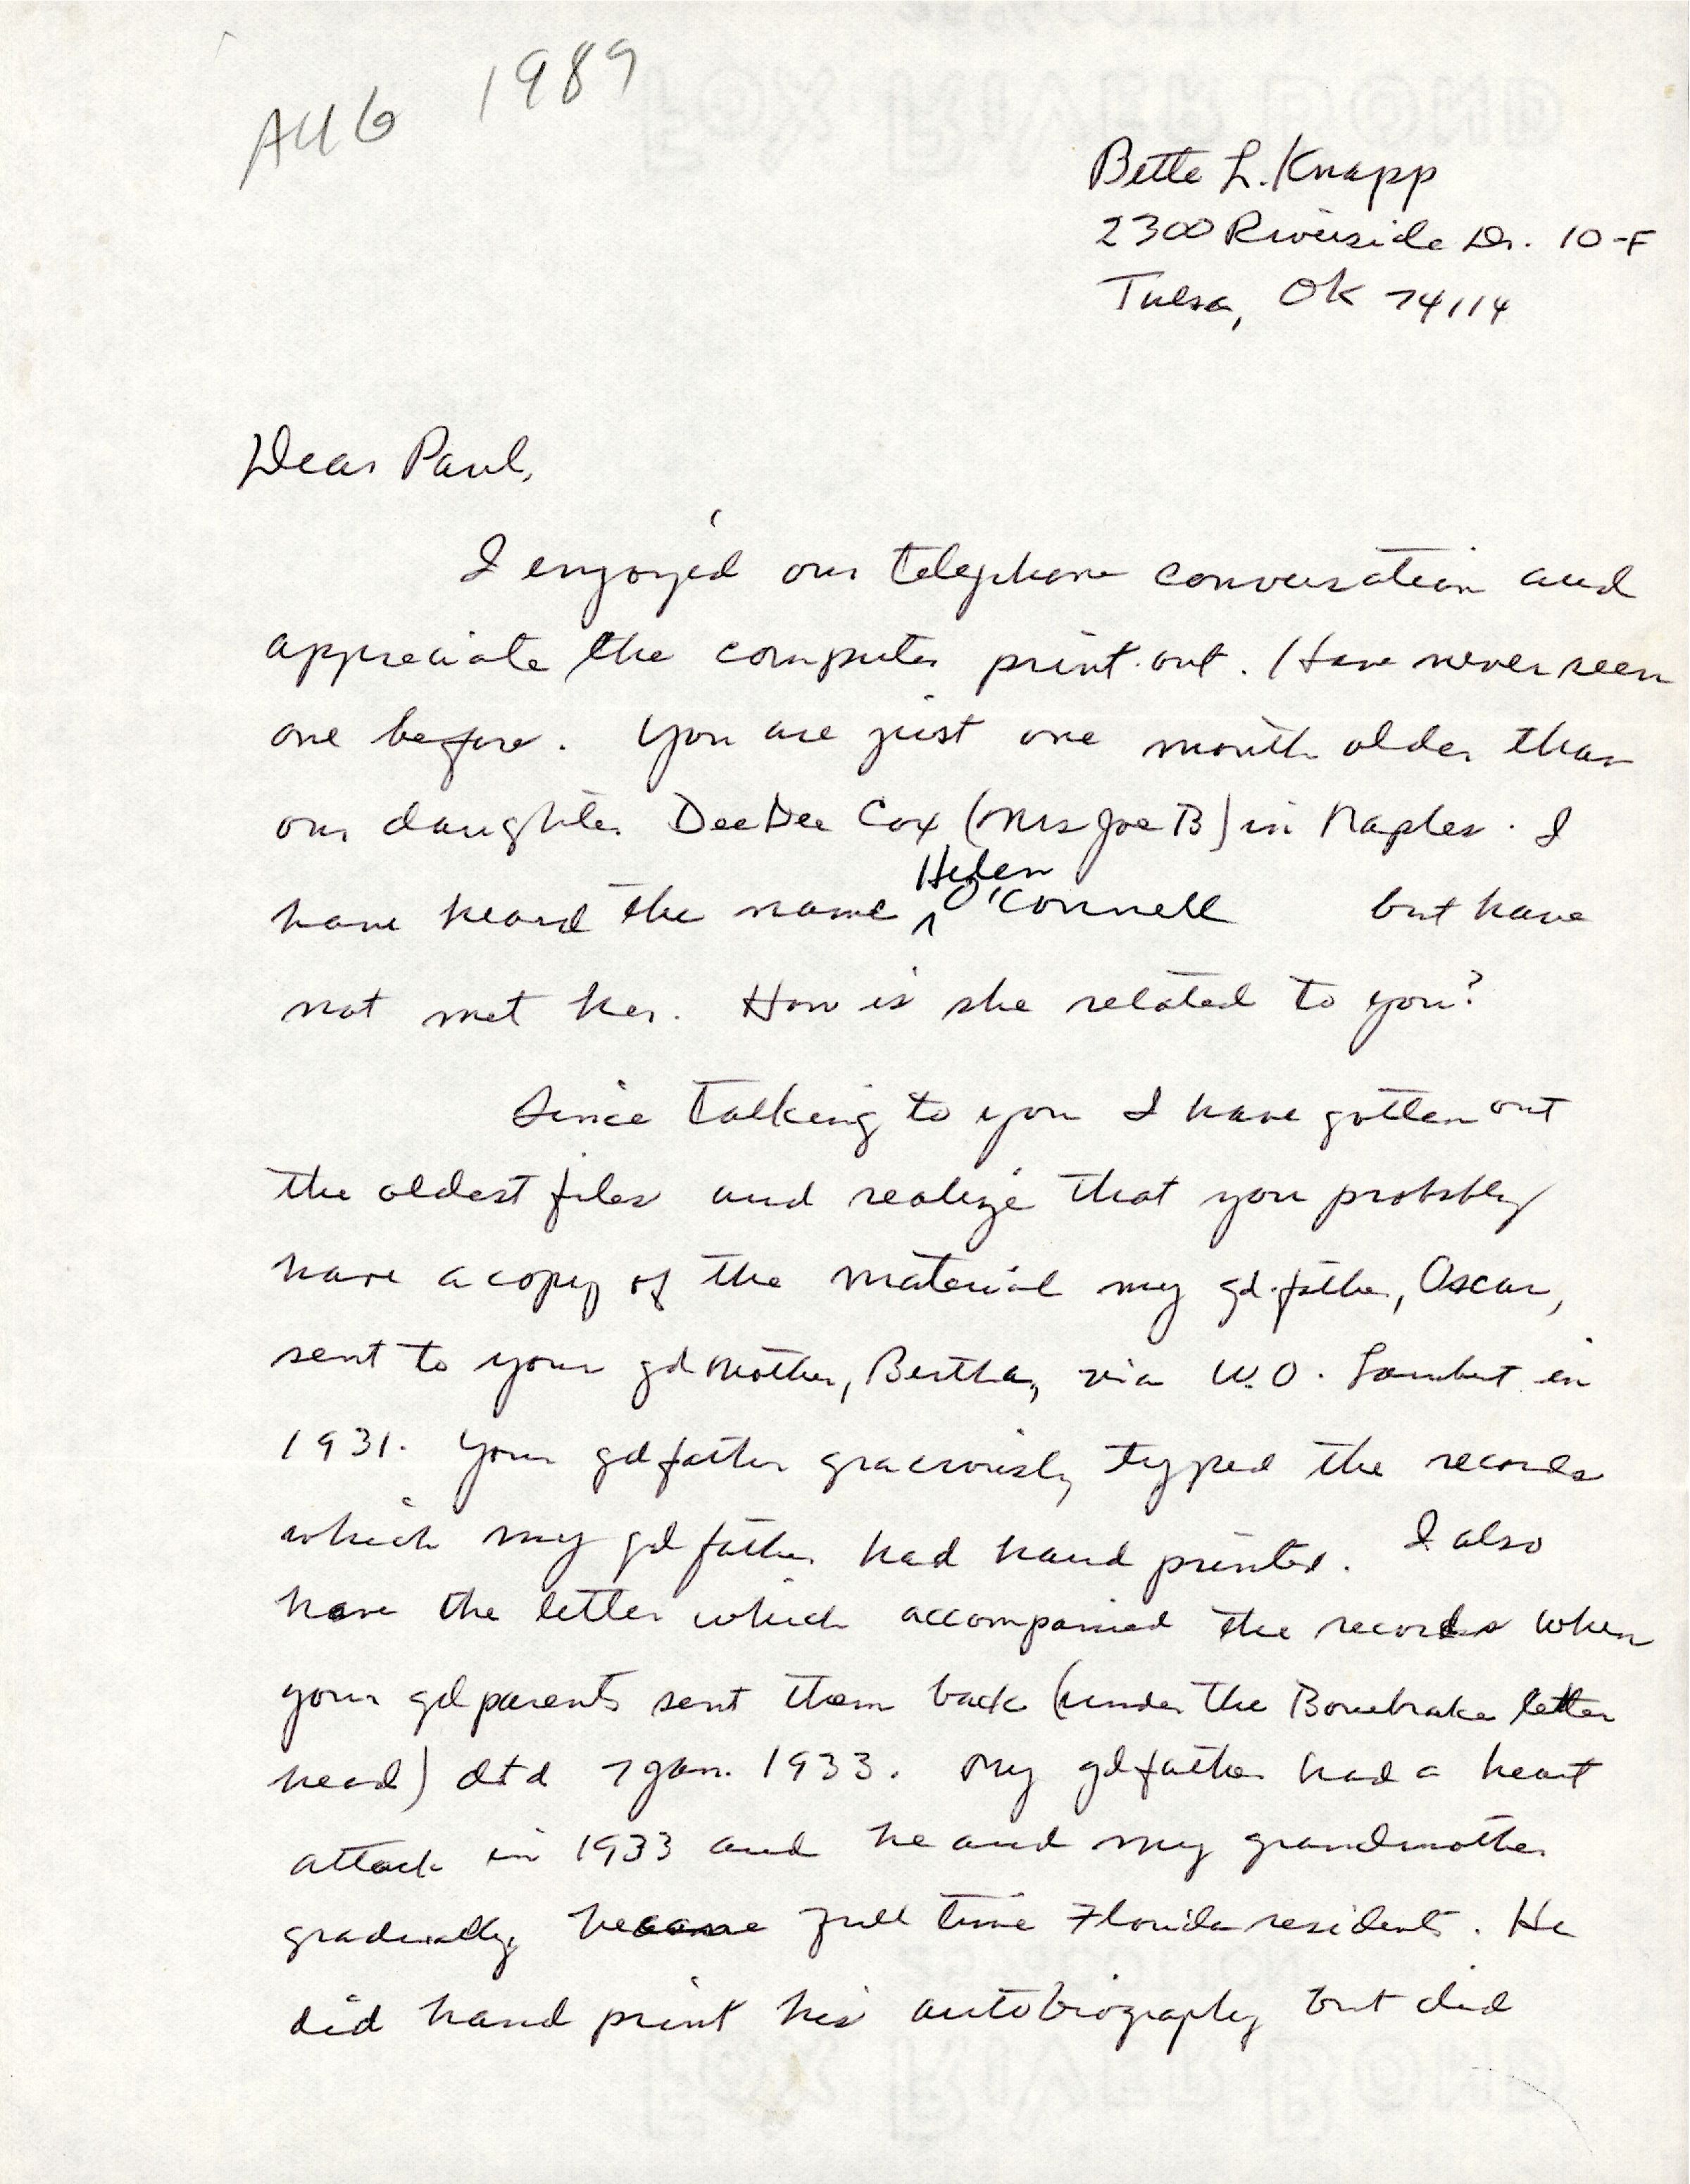 AUG 1989
Bette L. Knapp
2300 Riverside Dr. 10-F
Tulsa, OK 74114
Dear Paul,
I enjoyed our telephone conversation and
appreciate the computer print-out. Have never seen
one before. You are just one month older than
our daughter DeeDee Cox (Mrs Joe B) in Naples. I
have heard the name Helen O'Connell but have
not met her. How is she related to you?
Since talking to you I have gotten out
the oldest files and realize that you probably
have a copy of the material my gd.father, Oscar,
sent to your gdmother, Bertha, via W.O. Lambert in
1931. Your gdfather graciously typed the records
which my gdfather had hand printed. I also
have the letter which accompanied the records when
your gdparents sent them back (under the Bonebrake letter
head) dtd 7 Jan. 1933. My gdfather had a heart
attack in 1933 and he and my grandmother
gradually became full time Florida residents. He
did hand print his autobiography but did
FOX RIVER BOND
FOX RIVER BOND